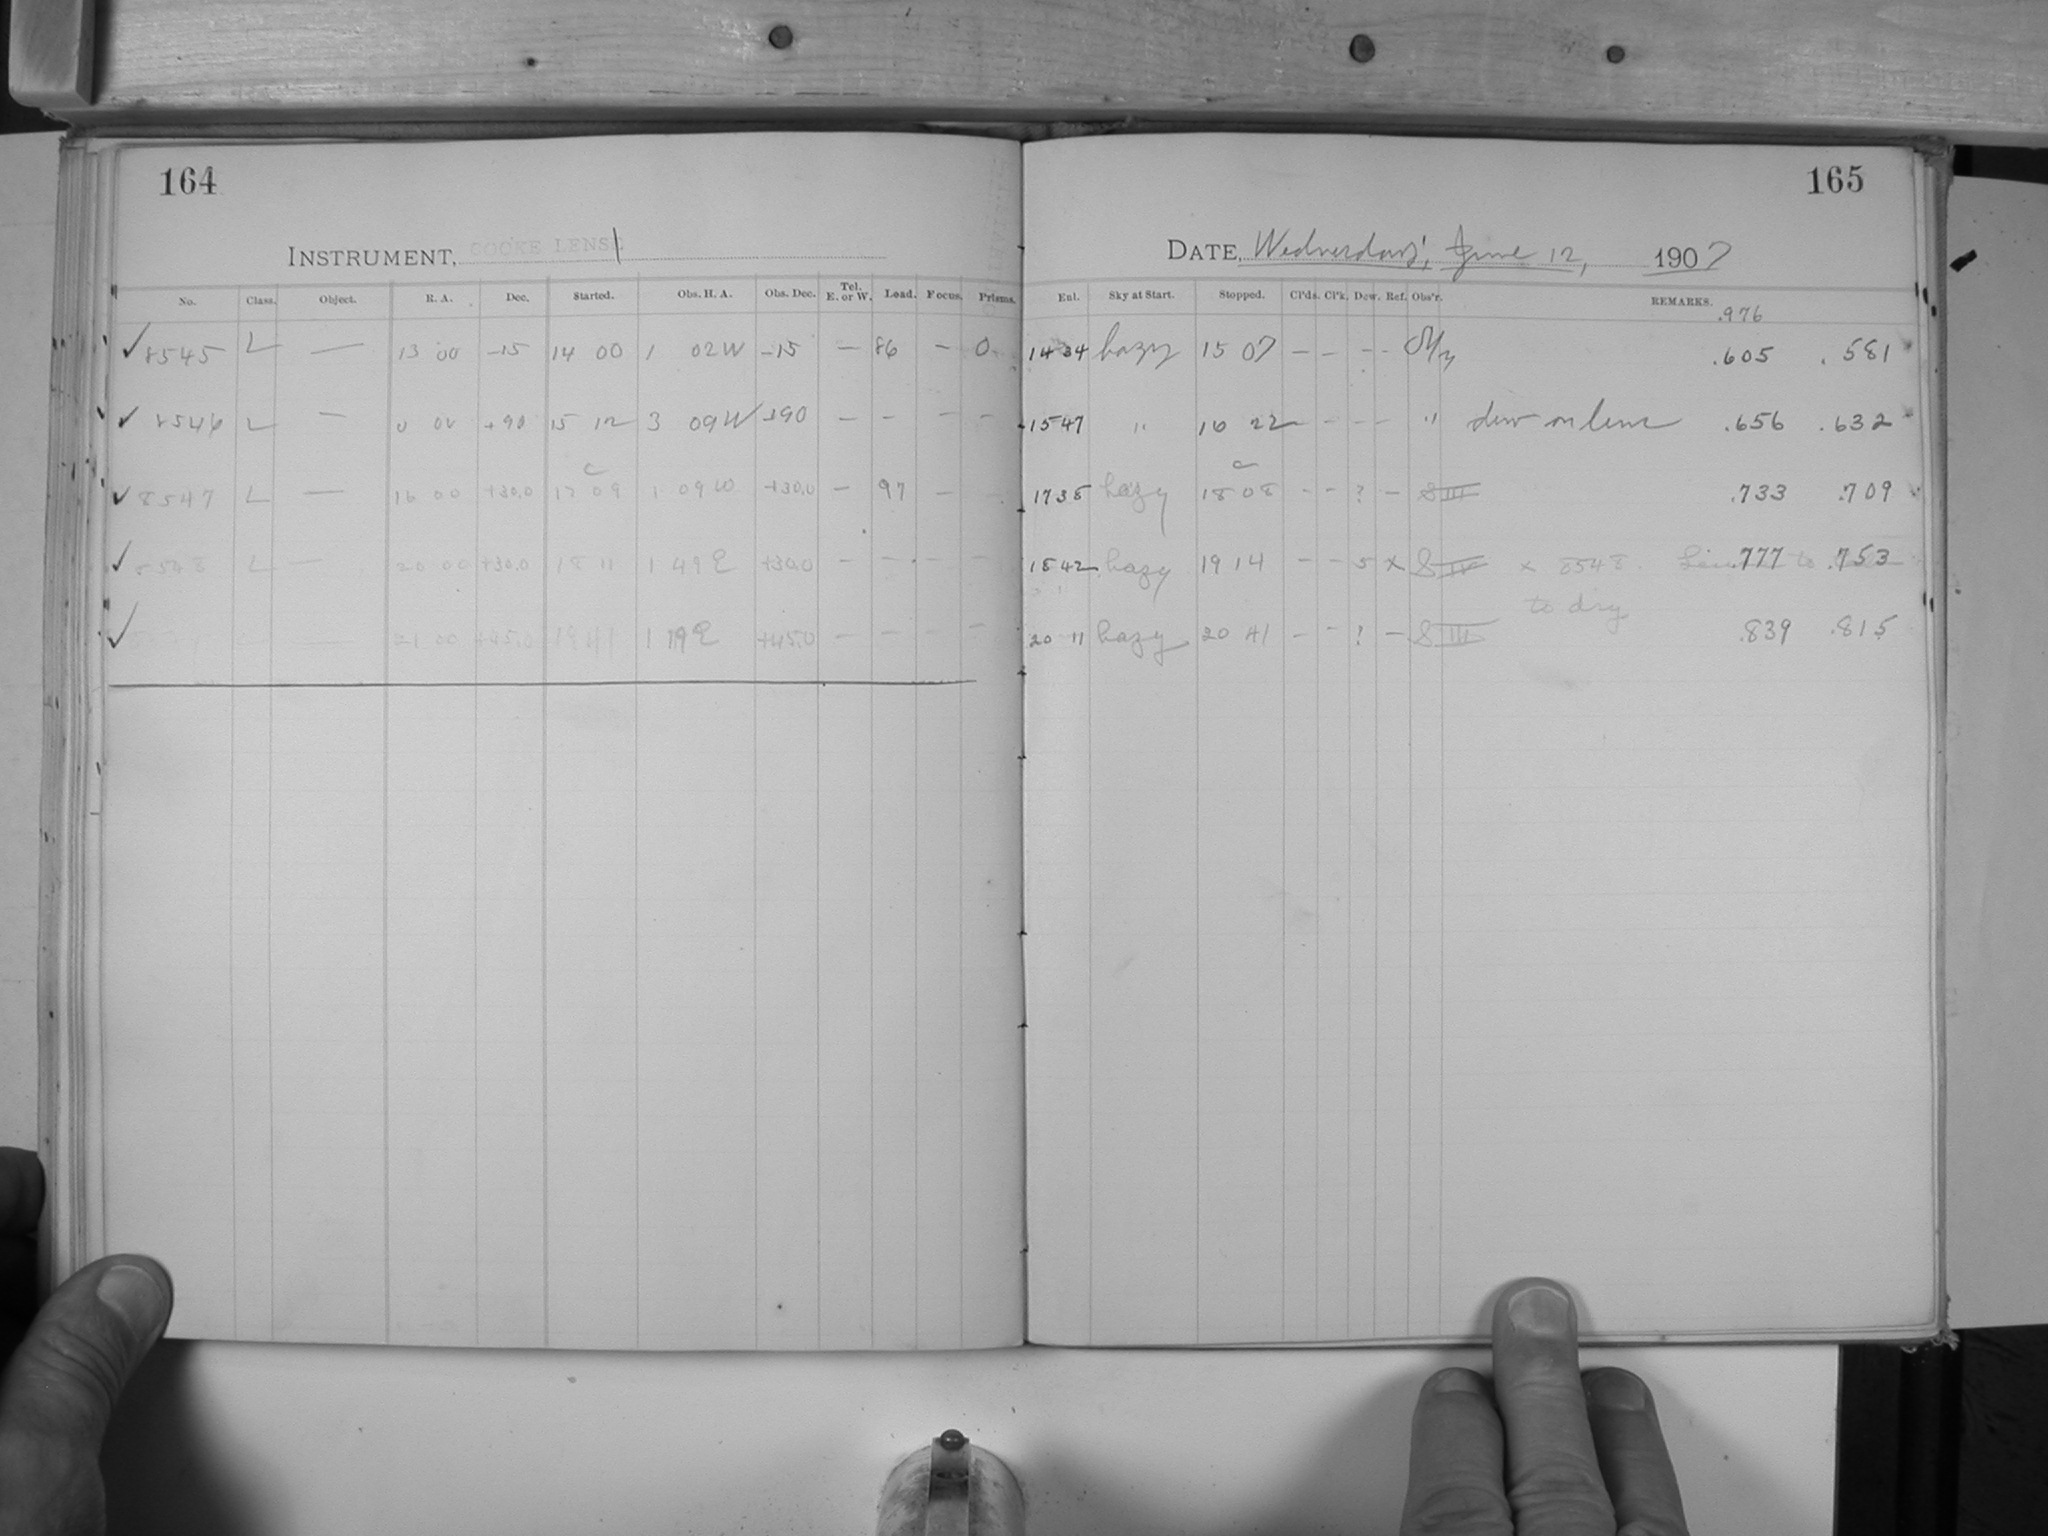 164
INSTRUMENT, COOKE LENS.
No. Class. Object. R. A. Dec. Started. Obs. H. A. Obs. Dec. Tel. E. or W. Load. Focus. Prisms.
8545 L — 13 00 -15 14 00 1 02 W -15 — 86 — 0
8546 L — 0 00 +90 15 12 3 09 W +90 — — — —
8547 L — 16 00 +30.0 17 09 1 09 W +30.0 — 97 —
8548 L — 20 00 +30.0 18 11 1 49 E +30.0 — — — —
— 21 00 +45.0 19 41 1 19 E +45.0 — — — —
165
DATE, Wednesday, June 12, 1907
Enl. Sky at Start. Stopped. Cl'ds. Cl'k. Dew. Ref. Obs'r. REMARKS.
.976
14 34 hazy 15 07 — — — — .605 .581
15 47 " 16 22 — — — — " dew on lens .656 .632
17 38 hazy 18 08 — — ? — S III .733 .709
18 42 hazy 19 14 — — 5 x S IV x 8548. .777 to .753
to dry
20 11 hazy 20 41 — — ? — S III .839 .815